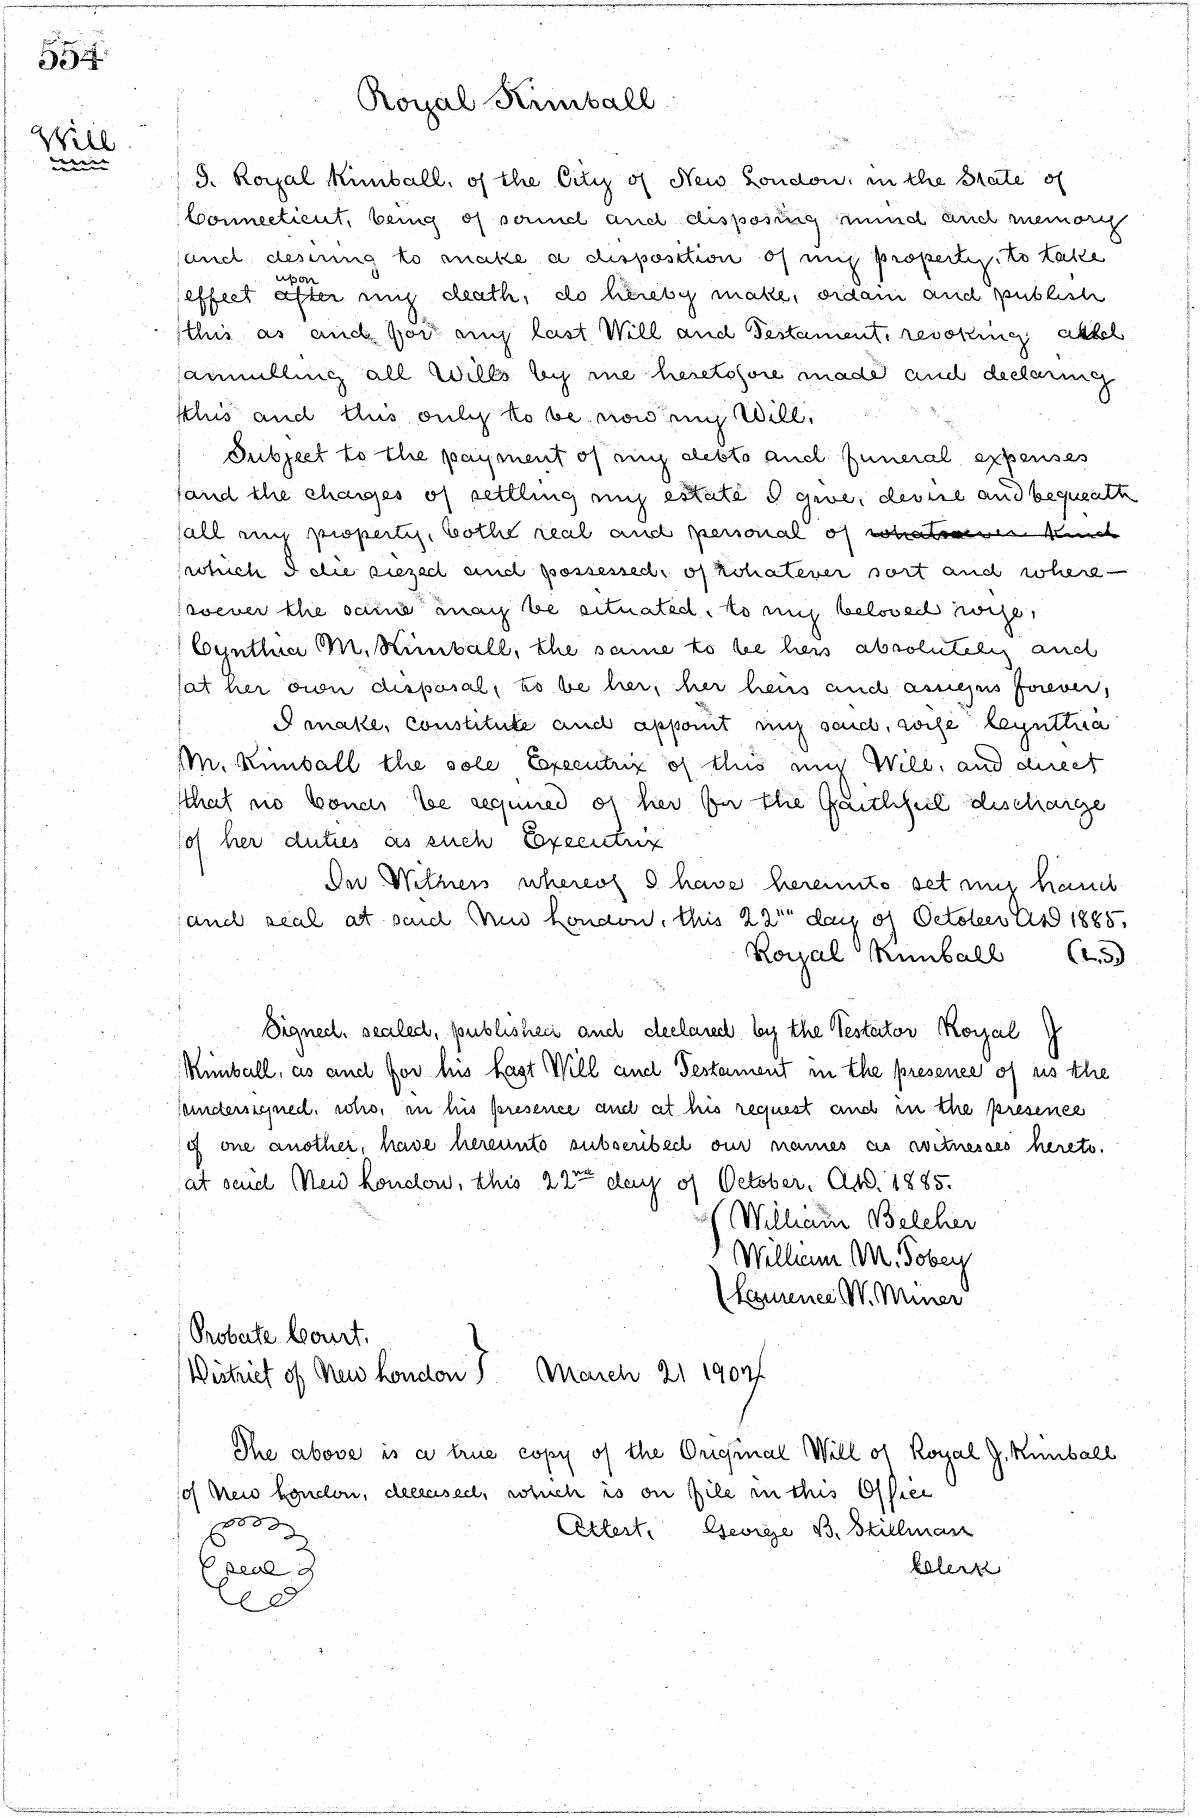 554
Royal Kimball
Will
I. Royal Kimball. of the City of New London. in the State of
Connecticut, being of sound and disposing mind and memory
and desiring to make a disposition of my property, to take
upon
effect after my death, do hereby make, ordain and publish
this as and for my last Will and Testament, revoking and
annulling all Wills by me heretofore made and declaring
this and this only to be now my Will.
Subject to the payment of my debts and funeral expenses
and the charges of settling my estate I give, devise and bequeath
all my property, both real and personal of whatsoever kind
which I die siezed and possessed, of whatever sort and where-
soever the same may be situated, to my beloved wife,
Cynthia M. Kimball, the same to be hers absolutely and
at her own disposal, to be her, her heirs and assigns forever,
I make, constitute and appoint my said, wife Cynthia
M. Kimball the sole Executrix of this my Will, and direct
that no bonds be required of her for the faithful discharge
of her duties as such Executrix
In Witness whereof I have hereunto set my hand
and seal at said New London, this 22nd day of October A.D 1885.
Royal Kimball (L.S.)
Signed, sealed, published and declared by the Testator Royal J
Kimball, as and for his Last Will and Testament in the presence of us the
undersigned, who, in his presence and at his request and in the presence
of one another, have hereunto subscribed our names as witnesses hereto.
at said New London, this 22nd day of October, A.D. 1885.
William Belcher
William M. Tobey
Laurence W. Miner
Probate Court.
District of New London } March 21 1907
The above is a true copy of the Original Will of Royal J. Kimball
of New London, deceased, which is on file in this Office
Attest, George B. Stillman
seal
Clerk